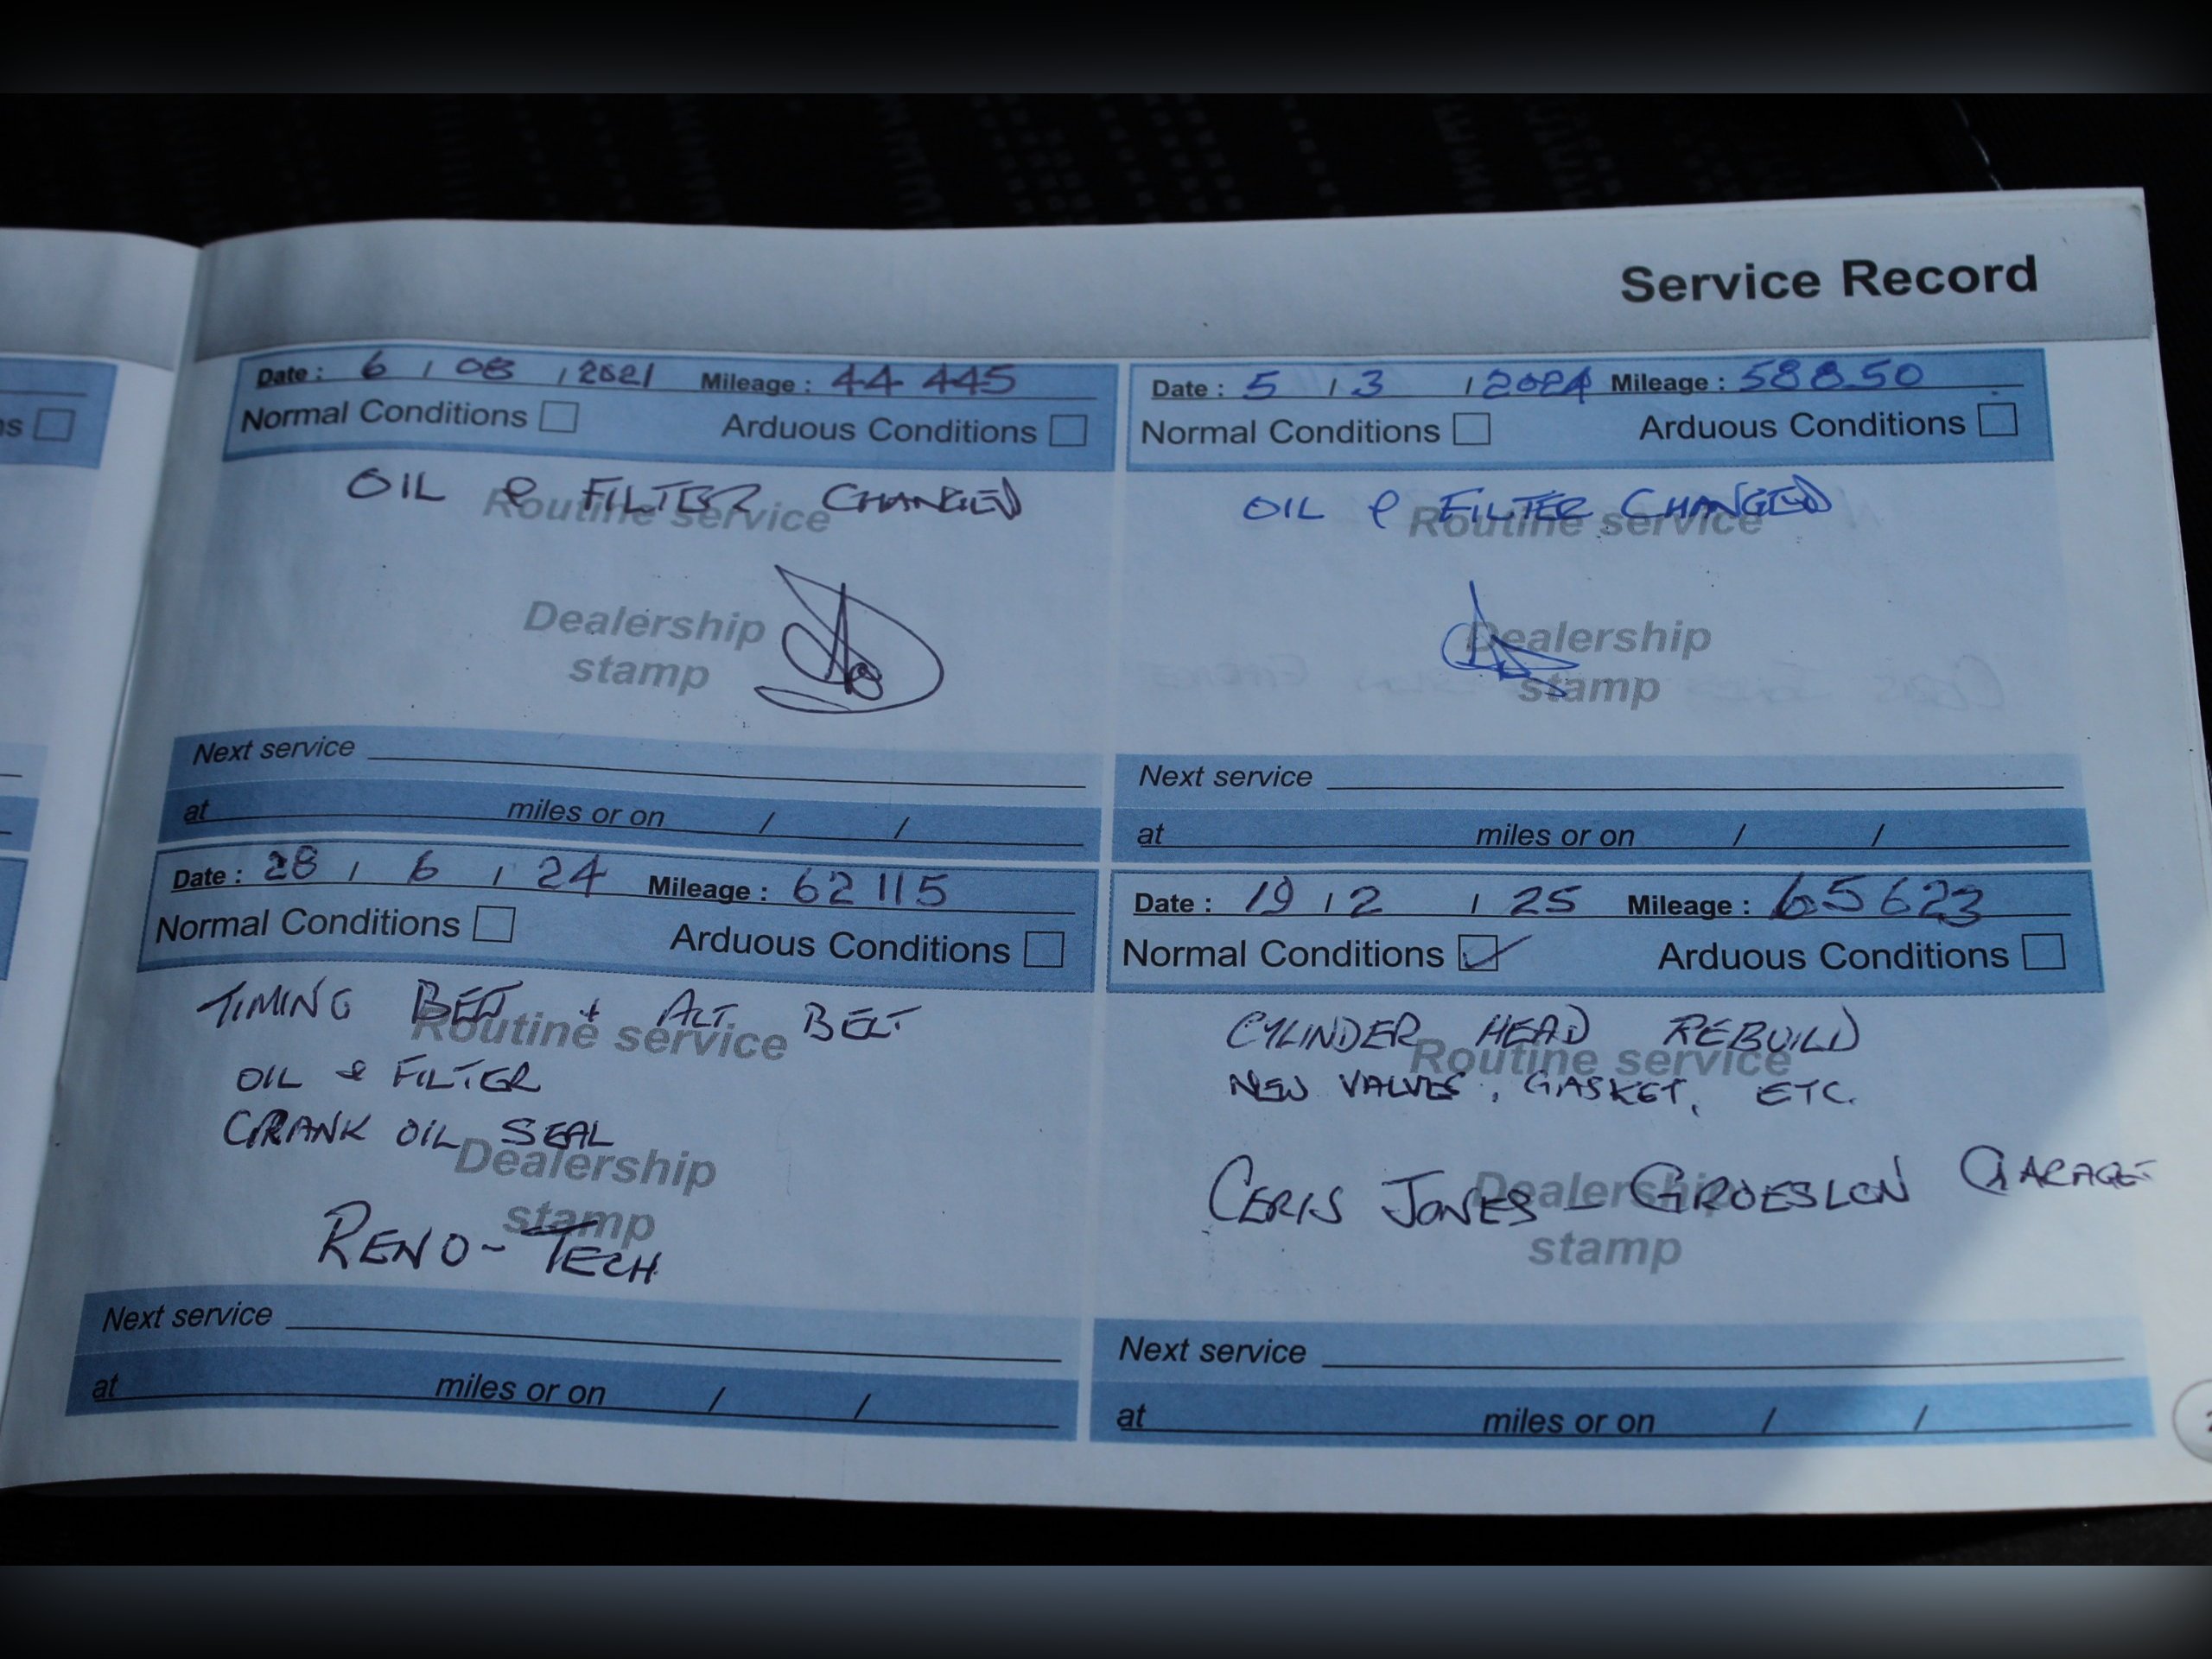 Service Record
s
Date : 6 / 08 / 2021 Mileage : 44 445
Normal Conditions Arduous Conditions
OIL & FILTER CHANGED
Routine service
Dealership
stamp
Next service
at miles or on / /
Date : 5 / 3 / 2024 Mileage : 58850
Normal Conditions Arduous Conditions
OIL & FILTER CHANGED
Routine service
Dealership
stamp
Next service
at miles or on / /
Date : 28 / 6 / 24 Mileage : 62 115
Normal Conditions Arduous Conditions
TIMING BELT + ALT BELT
Routine service
OIL & FILTER
CRANK OIL SEAL
Dealership
stamp
RENO-TECH
Next service
at miles or on / /
Date : 19 / 2 / 25 Mileage : 65623
Normal Conditions ✓ Arduous Conditions
CYLINDER HEAD REBUILD
Routine service
NEW VALVES, GASKET, ETC.
CERIS JONES – GROESLON GARAGE
Dealership
stamp
Next service
at miles or on / /